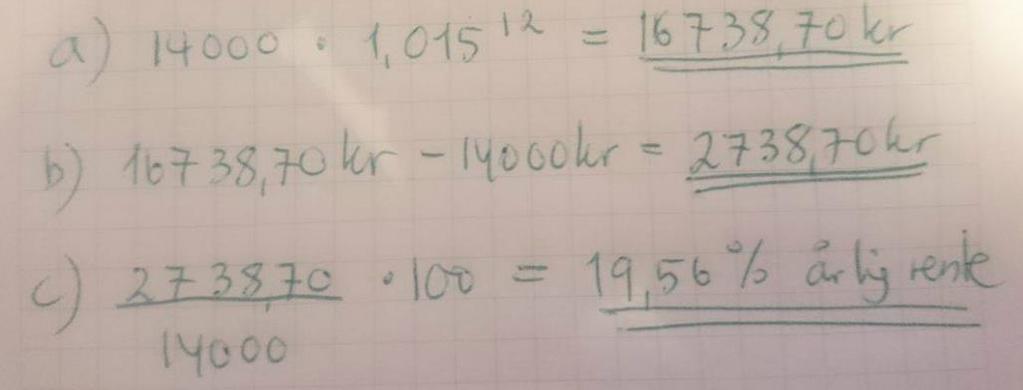 a) 14000 · 1,015^12 = 16738,70 kr
b) 16738,70 kr - 14000 kr = 2738,70 kr
c) 2738,70 / 14000 · 100 = 19,56 % årlig rente